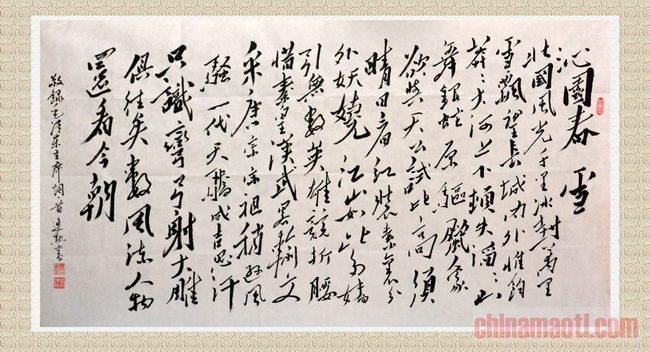 沁園春 雪
北國風光千里冰封萬里
雪飄望長城内外惟餘
莽〻大河上下頓失滔〻山
舞銀蛇原驅蠟象
欲與天公試比高須
晴日看紅裝素裹分
外妖嬈江山如此多嬌
引無數英雄競折腰
惜秦皇漢武略輸文
采唐宗宋祖稍遜風
騷一代天驕成吉思汗
只識彎弓射大雕
俱往矣數風流人物
還看今朝
敬録毛澤東主席詞
chinamaoti.com